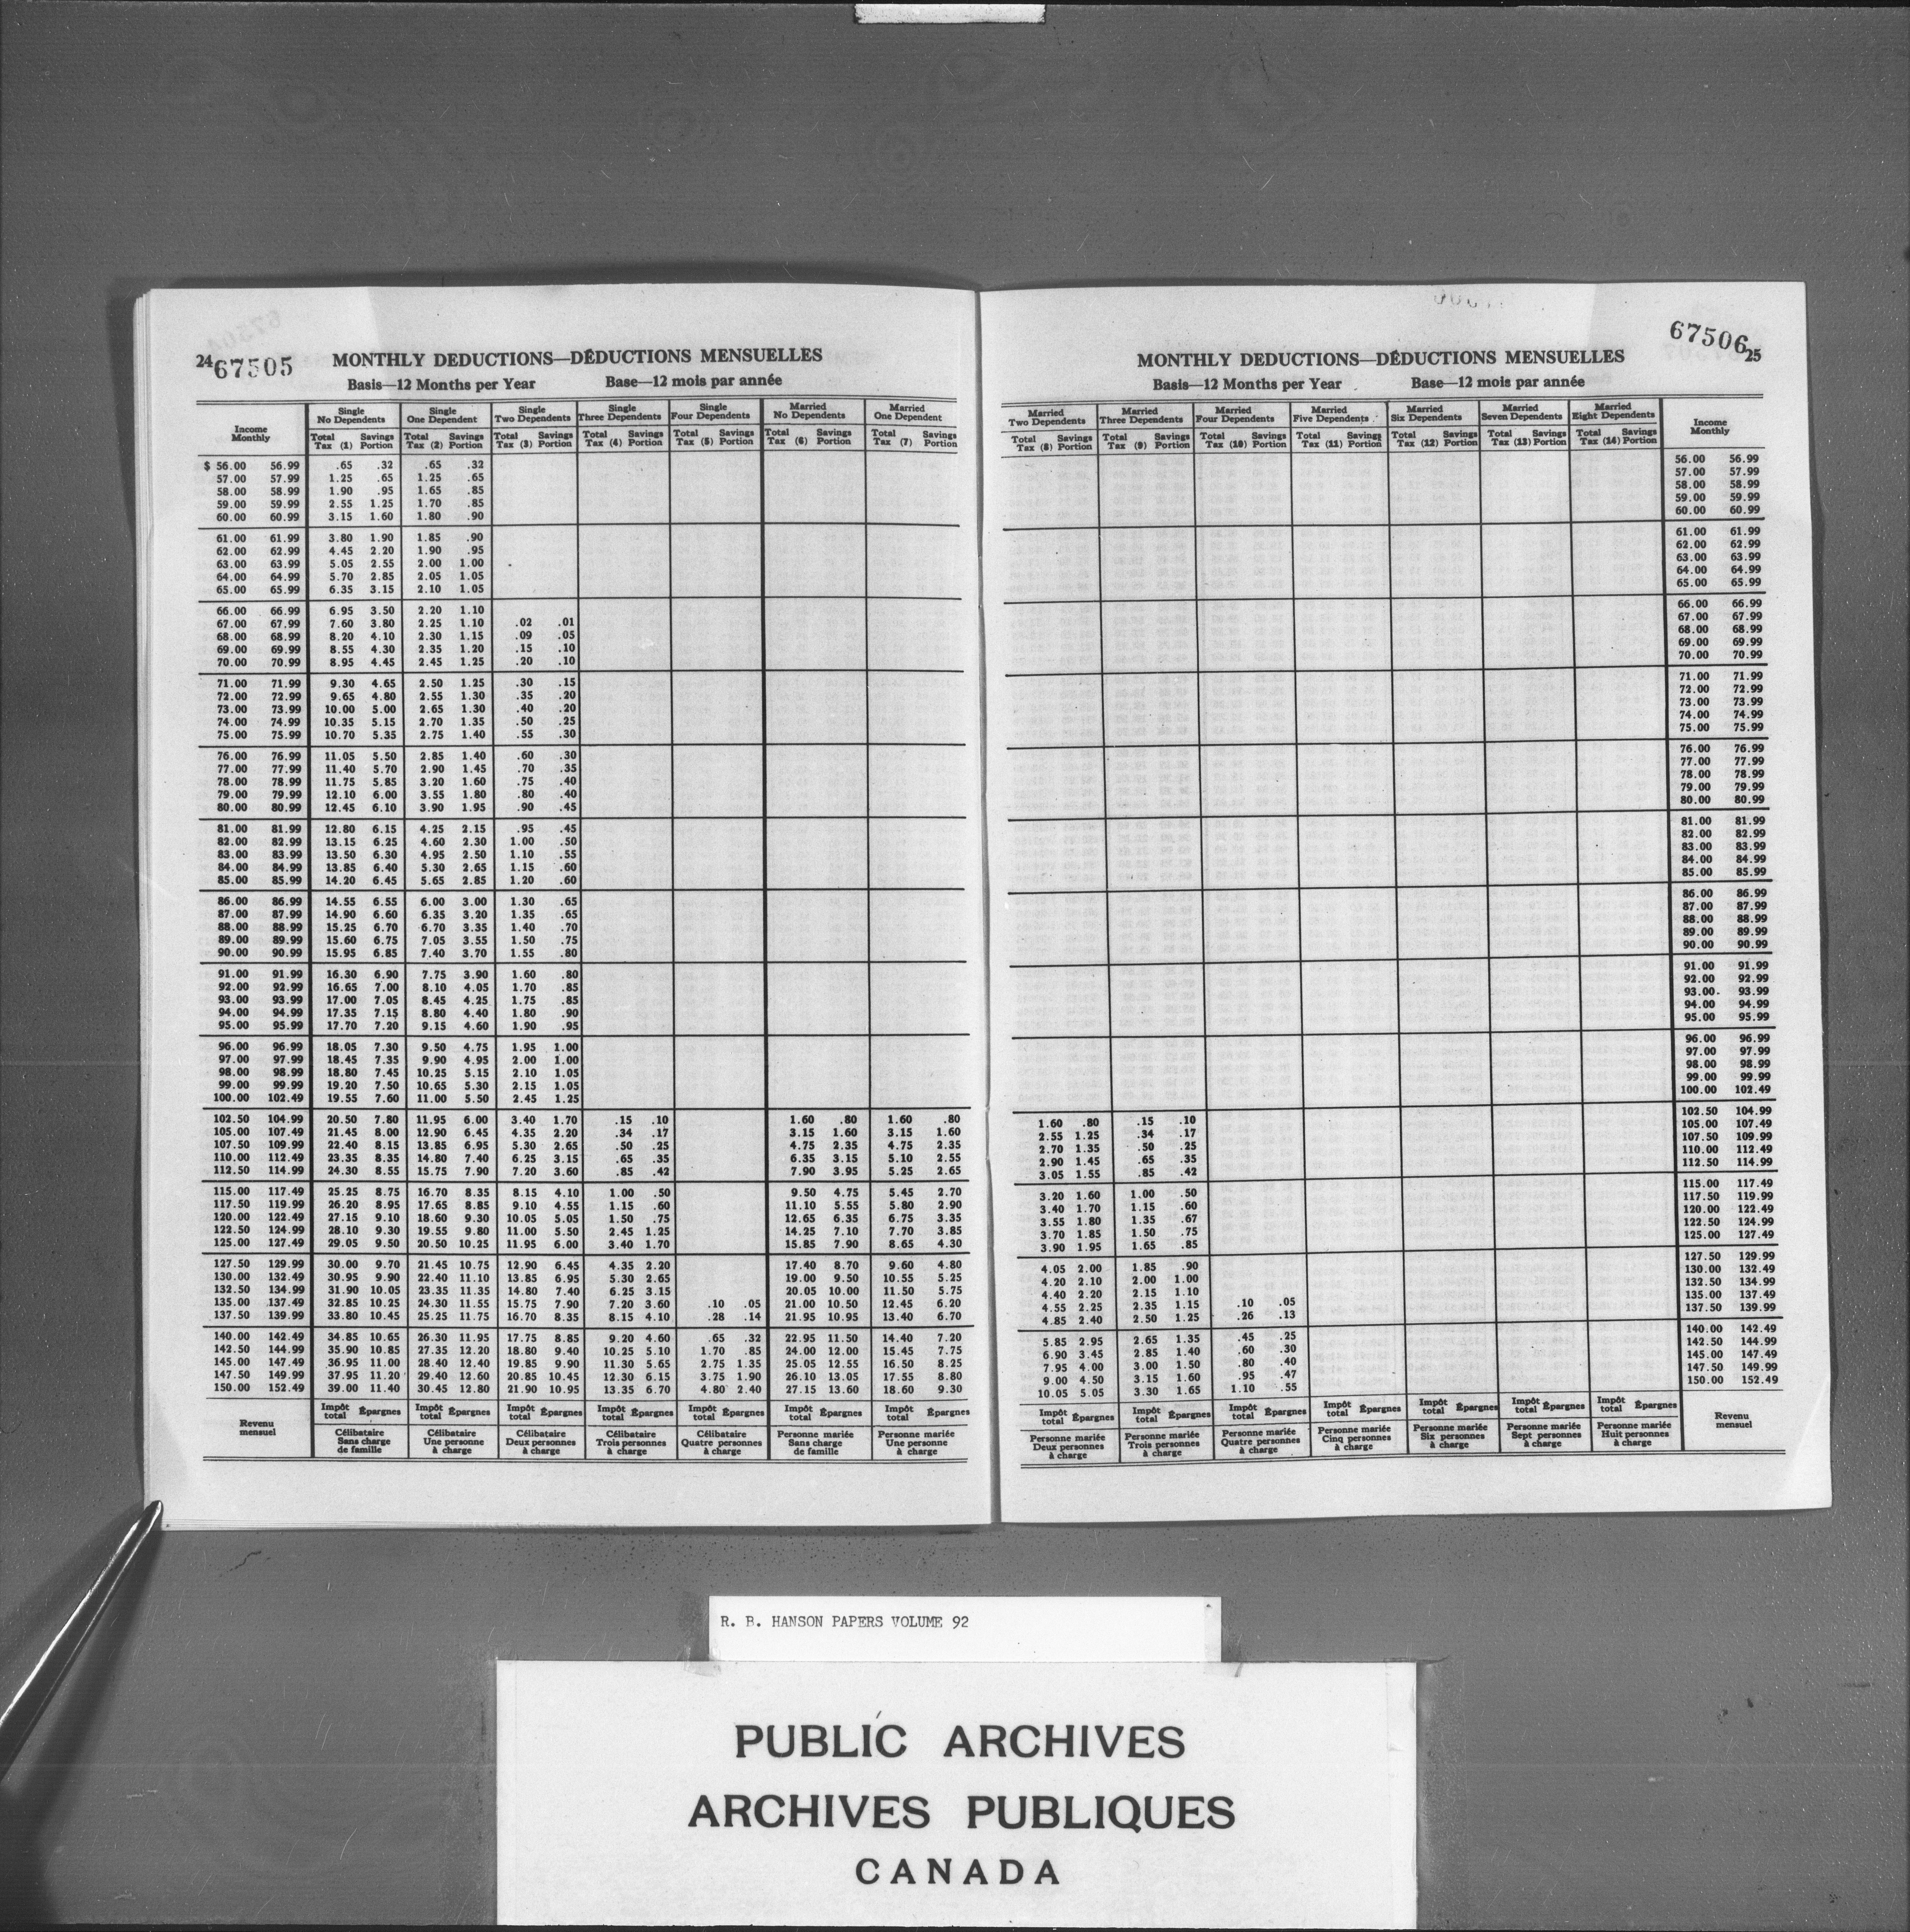 24 67505 MONTHLY DEDUCTIONS—DÉDUCTIONS MENSUELLES
Basis—12 Months per Year Base—12 mois par année
Single No Dependents Single One Dependent Single Two Dependents Single Three Dependents Single Four Dependents Married No Dependents Married One Dependent
Income Monthly Total Tax (1) Savings Portion Total Tax (2) Savings Portion Total Tax (3) Savings Portion Total Tax (4) Savings Portion Total Tax (5) Savings Portion Total Tax (6) Savings Portion Total Tax (7) Savings Portion
$ 56.00 56.99 .65 .32 .65 .32
57.00 57.99 1.25 .65 1.25 .65
58.00 58.99 1.90 .95 1.65 .85
59.00 59.99 2.55 1.25 1.70 .85
60.00 60.99 3.15 1.60 1.80 .90
61.00 61.99 3.80 1.90 1.85 .90
62.00 62.99 4.45 2.20 1.90 .95
63.00 63.99 5.05 2.55 2.00 1.00
64.00 64.99 5.70 2.85 2.05 1.05
65.00 65.99 6.35 3.15 2.10 1.05
66.00 66.99 6.95 3.50 2.20 1.10
67.00 67.99 7.60 3.80 2.25 1.10 .02 .01
68.00 68.99 8.20 4.10 2.30 1.15 .09 .05
69.00 69.99 8.55 4.30 2.35 1.20 .15 .10
70.00 70.99 8.95 4.45 2.45 1.25 .20 .10
71.00 71.99 9.30 4.65 2.50 1.25 .30 .15
72.00 72.99 9.65 4.80 2.55 1.30 .35 .20
73.00 73.99 10.00 5.00 2.65 1.30 .40 .20
74.00 74.99 10.35 5.15 2.70 1.35 .50 .25
75.00 75.99 10.70 5.35 2.75 1.40 .55 .30
76.00 76.99 11.05 5.50 2.85 1.40 .60 .30
77.00 77.99 11.40 5.70 2.90 1.45 .70 .35
78.00 78.99 11.75 5.85 3.20 1.60 .75 .40
79.00 79.99 12.10 6.00 3.55 1.80 .80 .40
80.00 80.99 12.45 6.10 3.90 1.95 .90 .45
81.00 81.99 12.80 6.15 4.25 2.15 .95 .45
82.00 82.99 13.15 6.25 4.60 2.30 1.00 .50
83.00 83.99 13.50 6.30 4.95 2.50 1.10 .55
84.00 84.99 13.85 6.40 5.30 2.65 1.15 .60
85.00 85.99 14.20 6.45 5.65 2.85 1.20 .60
86.00 86.99 14.55 6.55 6.00 3.00 1.30 .65
87.00 87.99 14.90 6.60 6.35 3.20 1.35 .65
88.00 88.99 15.25 6.70 6.70 3.35 1.40 .70
89.00 89.99 15.60 6.75 7.05 3.55 1.50 .75
90.00 90.99 15.95 6.85 7.40 3.70 1.55 .80
91.00 91.99 16.30 6.90 7.75 3.90 1.60 .80
92.00 92.99 16.65 7.00 8.10 4.05 1.70 .85
93.00 93.99 17.00 7.05 8.45 4.25 1.75 .85
94.00 94.99 17.35 7.15 8.80 4.40 1.80 .90
95.00 95.99 17.70 7.20 9.15 4.60 1.90 .95
96.00 96.99 18.05 7.30 9.50 4.75 1.95 1.00
97.00 97.99 18.45 7.35 9.90 4.95 2.00 1.00
98.00 98.99 18.80 7.45 10.25 5.15 2.10 1.05
99.00 99.99 19.20 7.50 10.65 5.30 2.15 1.05
100.00 102.49 19.55 7.60 11.00 5.50 2.45 1.25
102.50 104.99 20.50 7.80 11.95 6.00 3.40 1.70 .15 .10 1.60 .80 1.60 .80
105.00 107.49 21.45 8.00 12.90 6.45 4.35 2.20 .34 .17 3.15 1.60 3.15 1.60
107.50 109.99 22.40 8.15 13.85 6.95 5.30 2.65 .50 .25 4.75 2.35 4.75 2.35
110.00 112.49 23.35 8.35 14.80 7.40 6.25 3.15 .65 .35 6.35 3.15 5.10 2.55
112.50 114.99 24.30 8.55 15.75 7.90 7.20 3.60 .85 .42 7.90 3.95 5.25 2.65
115.00 117.49 25.25 8.75 16.70 8.35 8.15 4.10 1.00 .50 9.50 4.75 5.45 2.70
117.50 119.99 26.20 8.95 17.65 8.85 9.10 4.55 1.15 .60 11.10 5.55 5.80 2.90
120.00 122.49 27.15 9.10 18.60 9.30 10.05 5.05 1.50 .75 12.65 6.35 6.75 3.35
122.50 124.99 28.10 9.30 19.55 9.80 11.00 5.50 2.45 1.25 14.25 7.10 7.70 3.85
125.00 127.49 29.05 9.50 20.50 10.25 11.95 6.00 3.40 1.70 15.85 7.90 8.65 4.30
127.50 129.99 30.00 9.70 21.45 10.75 12.90 6.45 4.35 2.20 17.40 8.70 9.60 4.80
130.00 132.49 30.95 9.90 22.40 11.10 13.85 6.95 5.30 2.65 19.00 9.50 10.55 5.25
132.50 134.99 31.90 10.05 23.35 11.35 14.80 7.40 6.25 3.15 20.05 10.00 11.50 5.75
135.00 137.49 32.85 10.25 24.30 11.55 15.75 7.90 7.20 3.60 .10 .05 21.00 10.50 12.45 6.20
137.50 139.99 33.80 10.45 25.25 11.75 16.70 8.35 8.15 4.10 .28 .14 21.95 10.95 13.40 6.70
140.00 142.49 34.85 10.65 26.30 11.95 17.75 8.85 9.20 4.60 .65 .32 22.95 11.50 14.40 7.20
142.50 144.99 35.90 10.85 27.35 12.20 18.80 9.40 10.25 5.10 1.70 .85 24.00 12.00 15.45 7.75
145.00 147.49 36.95 11.00 28.40 12.40 19.85 9.90 11.30 5.65 2.75 1.35 25.05 12.55 16.50 8.25
147.50 149.99 37.95 11.20 29.40 12.60 20.85 10.45 12.30 6.15 3.75 1.90 26.10 13.05 17.55 8.80
150.00 152.49 39.00 11.40 30.45 12.80 21.90 10.95 13.35 6.70 4.80 2.40 27.15 13.60 18.60 9.30
Revenu mensuel Impôt total Épargnes Impôt total Épargnes Impôt total Épargnes Impôt total Épargnes Impôt total Épargnes Impôt total Épargnes Impôt total Épargnes
Célibataire Sans charge de famille Célibataire Une personne à charge Célibataire Deux personnes à charge Célibataire Trois personnes à charge Célibataire Quatre personnes à charge Personne mariée Sans charge de famille Personne mariée Une personne à charge
MONTHLY DEDUCTIONS—DÉDUCTIONS MENSUELLES 67506 25
Basis—12 Months per Year Base—12 mois par année
Married Two Dependents Married Three Dependents Married Four Dependents Married Five Dependents Married Six Dependents Married Seven Dependents Married Eight Dependents
Total Tax (8) Savings Portion Total Tax (9) Savings Portion Total Tax (10) Savings Portion Total Tax (11) Savings Portion Total Tax (12) Savings Portion Total Tax (13) Savings Portion Total Tax (14) Savings Portion Income Monthly
56.00 56.99
57.00 57.99
58.00 58.99
59.00 59.99
60.00 60.99
61.00 61.99
62.00 62.99
63.00 63.99
64.00 64.99
65.00 65.99
66.00 66.99
67.00 67.99
68.00 68.99
69.00 69.99
70.00 70.99
71.00 71.99
72.00 72.99
73.00 73.99
74.00 74.99
75.00 75.99
76.00 76.99
77.00 77.99
78.00 78.99
79.00 79.99
80.00 80.99
81.00 81.99
82.00 82.99
83.00 83.99
84.00 84.99
85.00 85.99
86.00 86.99
87.00 87.99
88.00 88.99
89.00 89.99
90.00 90.99
91.00 91.99
92.00 92.99
93.00 93.99
94.00 94.99
95.00 95.99
96.00 96.99
97.00 97.99
98.00 98.99
99.00 99.99
100.00 102.49
1.60 .80 .15 .10 102.50 104.99
2.55 1.25 .34 .17 105.00 107.49
2.70 1.35 .50 .25 107.50 109.99
2.90 1.45 .65 .35 110.00 112.49
3.05 1.55 .85 .42 112.50 114.99
3.20 1.60 1.00 .50 115.00 117.49
3.40 1.70 1.15 .60 117.50 119.99
3.55 1.80 1.35 .67 120.00 122.49
3.70 1.85 1.50 .75 122.50 124.99
3.90 1.95 1.65 .85 125.00 127.49
4.05 2.00 1.85 .90 127.50 129.99
4.20 2.10 2.00 1.00 130.00 132.49
4.40 2.20 2.15 1.10 132.50 134.99
4.55 2.25 2.35 1.15 .10 .05 135.00 137.49
4.85 2.40 2.50 1.25 .26 .13 137.50 139.99
5.85 2.95 2.65 1.35 .45 .25 140.00 142.49
6.90 3.45 2.85 1.40 .60 .30 142.50 144.99
7.95 4.00 3.00 1.50 .80 .40 145.00 147.49
9.00 4.50 3.15 1.60 .95 .47 147.50 149.99
10.05 5.05 3.30 1.65 1.10 .55 150.00 152.49
Impôt total Épargnes Impôt total Épargnes Impôt total Épargnes Impôt total Épargnes Impôt total Épargnes Impôt total Épargnes Impôt total Épargnes Revenu mensuel
Personne mariée Deux personnes à charge Personne mariée Trois personnes à charge Personne mariée Quatre personnes à charge Personne mariée Cinq personnes à charge Personne mariée Six personnes à charge Personne mariée Sept personnes à charge Personne mariée Huit personnes à charge
R. B. HANSON PAPERS VOLUME 92
PUBLIC ARCHIVES
ARCHIVES PUBLIQUES
CANADA